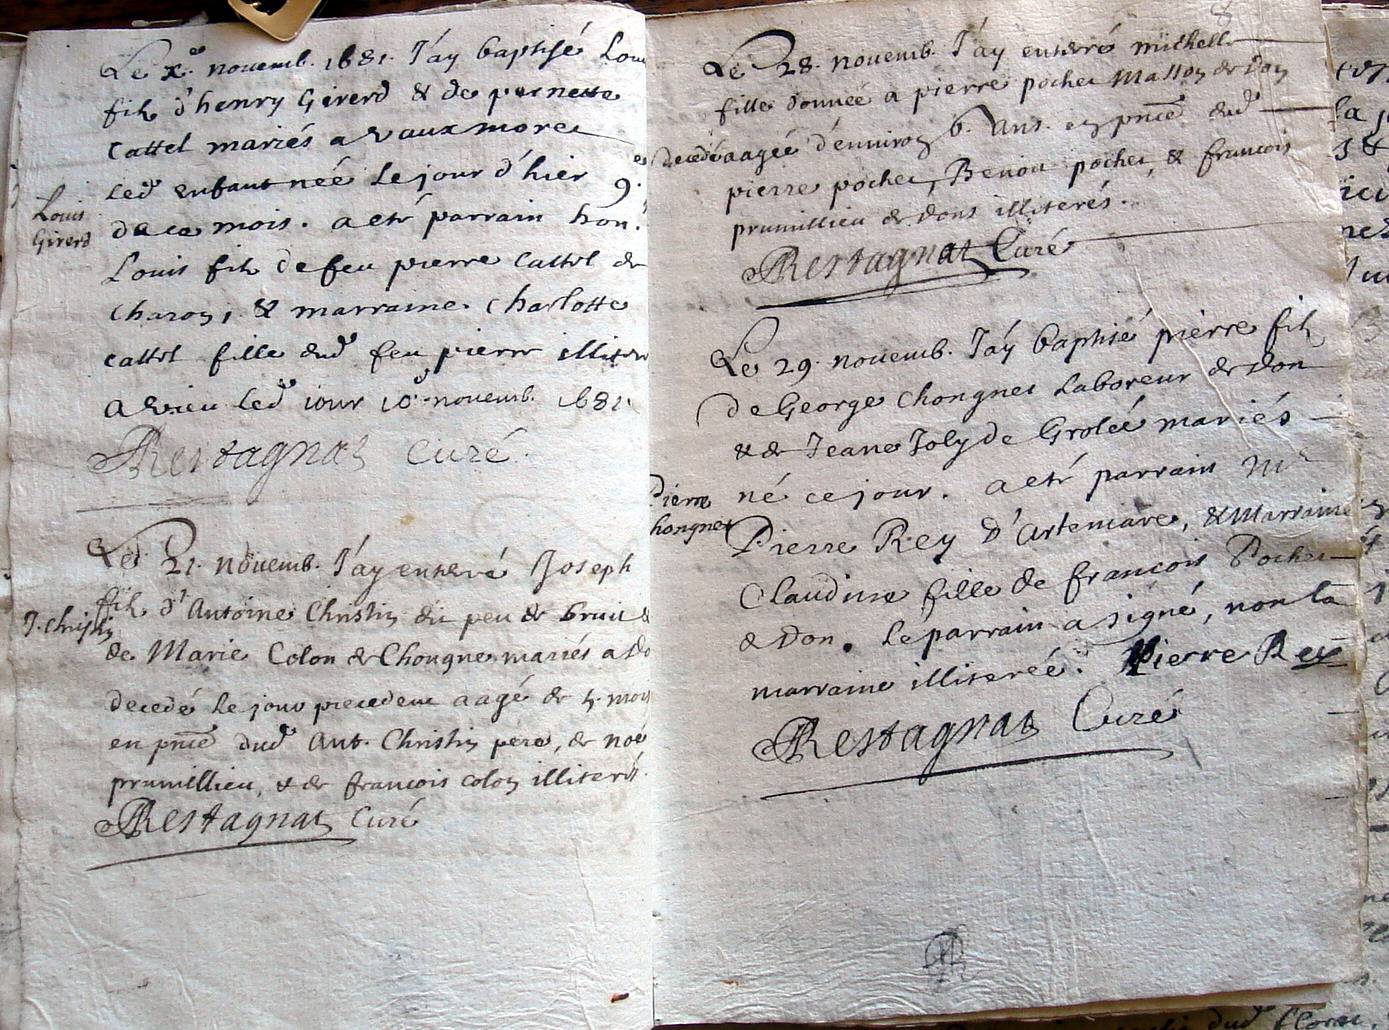 Le x.e novemb. 1681. J'ay baptisé Lou
fils d'henry Girerd & de pernette
Cattel mariés a vauxmore
Led enfant née le jour d'hier 9.
de ce mois. a eté parrain hon.
Louis fils de feu pierre Cattel de
Charon, & marraine Charlotte
Cattel fille dud feu pierre illiter
A vieu led iour 10e novemb. 1681.
Louis
Girerd
Restagnat Curé.
Le 21. novemb. J'ay enterré Joseph
fils d'Antoine Christin dit peu de bruit &
J. Christin
de Marie Colon de Chongne mariés a Do
decedé le jour precedent aagé de 4. mois
en pnce dud Ant. Christin pere, de noé
prumillieu, & de francois colon illiterés.
Restagnat Curé
8
Le 28. novemb. J'ay enterré michelle
fille donnée a pierre pochet Masson de Don
decedé aagée d'environ 6. Ans. en pnce dud
pierre pochet, Benoit pochet, & francois
prumillieu de Dons illiterés.
Restagnat Curé
Le 29. novemb. J'ay baptisé pierre fils
de George Chongnet Laboreur de Don
& de Jeane Joly de Grolée mariés
né ce jour. a eté parrain Mr
Pierre
hongnet
Pierre Rey d'Artemare, & Marraine
Claudine fille de francois Pochet
de Don. Le parrain a signé, non la
marraine illiterée. Pierre Rey
Restagnat Curé